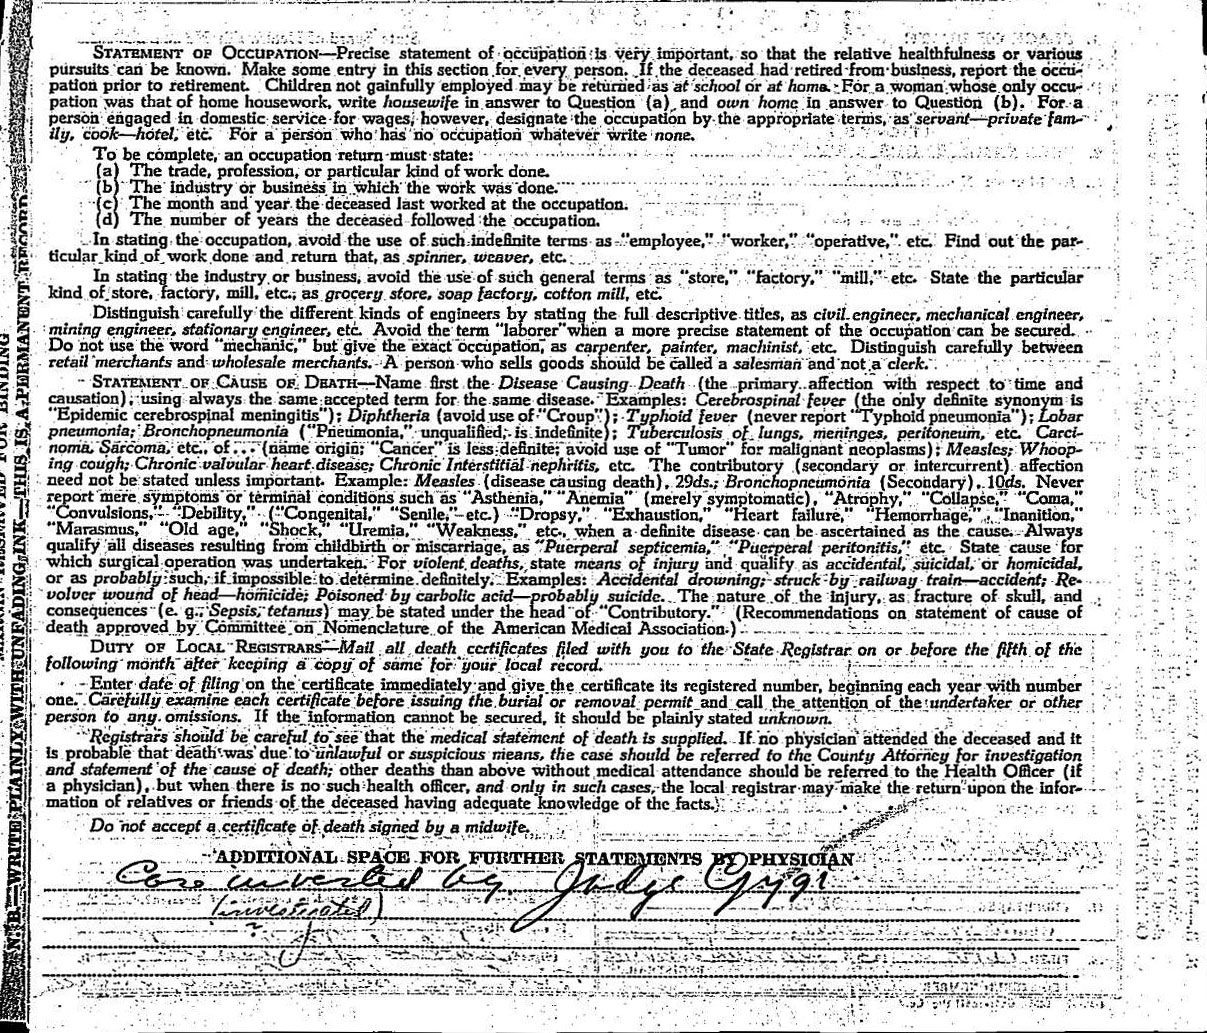 STATEMENT OF OCCUPATION—Precise statement of occupation is very important, so that the relative healthfulness or various
pursuits can be known. Make some entry in this section for every person. If the deceased had retired from business, report the occu-
pation prior to retirement. Children not gainfully employed may be returned as at school or at home. For a woman whose only occu-
pation was that of home housework, write housewife in answer to Question (a) and own home in answer to Question (b). For a
person engaged in domestic service for wages, however, designate the occupation by the appropriate terms, as servant—private fam-
ily, cook—hotel, etc. For a person who has no occupation whatever write none.
To be complete, an occupation return must state:
(a) The trade, profession, or particular kind of work done.
(b) The industry or business in which the work was done.
(c) The month and year the deceased last worked at the occupation.
(d) The number of years the deceased followed the occupation.
In stating the occupation, avoid the use of such indefinite terms as "employee," "worker," "operative," etc. Find out the par-
ticular kind of work done and return that, as spinner, weaver, etc.
In stating the industry or business, avoid the use of such general terms as "store," "factory," "mill," etc. State the particular
kind of store, factory, mill, etc.; as grocery store, soap factory, cotton mill, etc.
Distinguish carefully the different kinds of engineers by stating the full descriptive titles, as civil engineer, mechanical engineer,
mining engineer, stationary engineer, etc. Avoid the term "laborer" when a more precise statement of the occupation can be secured.
Do not use the word "mechanic," but give the exact occupation, as carpenter, painter, machinist, etc. Distinguish carefully between
retail merchants and wholesale merchants. A person who sells goods should be called a salesman and not a clerk.
STATEMENT OF CAUSE OF DEATH—Name first the Disease Causing Death (the primary affection with respect to time and
causation), using always the same accepted term for the same disease. Examples: Cerebrospinal fever (the only definite synonym is
"Epidemic cerebrospinal meningitis"); Diphtheria (avoid use of "Croup"); Typhoid fever (never report "Typhoid pneumonia"); Lobar
pneumonia; Bronchopneumonia ("Pneumonia," unqualified, is indefinite); Tuberculosis of lungs, meninges, peritoneum, etc. Carci-
noma, Sarcoma, etc., of ... (name origin; "Cancer" is less definite; avoid use of "Tumor" for malignant neoplasms); Measles; Whoop-
ing cough; Chronic valvular heart disease; Chronic Interstitial nephritis, etc. The contributory (secondary or intercurrent) affection
need not be stated unless important. Example: Measles (disease causing death), 29ds.; Bronchopneumonia (Secondary), 10ds. Never
report mere symptoms or terminal conditions such as "Asthenia," "Anemia" (merely symptomatic), "Atrophy," "Collapse," "Coma,"
"Convulsions," "Debility," ("Congenital," "Senile," etc.) "Dropsy," "Exhaustion," "Heart failure," "Hemorrhage," "Inanition,"
"Marasmus," "Old age," "Shock," "Uremia," "Weakness," etc., when a definite disease can be ascertained as the cause. Always
qualify all diseases resulting from childbirth or miscarriage, as "Puerperal septicemia," "Puerperal peritonitis," etc. State cause for
which surgical operation was undertaken. For violent deaths, state means of injury and qualify as accidental, suicidal, or homicidal,
or as probably such, if impossible to determine definitely. Examples: Accidental drowning; struck by railway train—accident; Re-
volver wound of head—homicide; Poisoned by carbolic acid—probably suicide. The nature of the injury, as fracture of skull, and
consequences (e. g., Sepsis, tetanus) may be stated under the head of "Contributory." (Recommendations on statement of cause of
death approved by Committee on Nomenclature of the American Medical Association.)
DUTY OF LOCAL REGISTRARS—Mail all death certificates filed with you to the State Registrar on or before the fifth of the
following month after keeping a copy of same for your local record.
Enter date of filing on the certificate immediately and give the certificate its registered number, beginning each year with number
one. Carefully examine each certificate before issuing the burial or removal permit and call the attention of the undertaker or other
person to any omissions. If the information cannot be secured, it should be plainly stated unknown.
Registrars should be careful to see that the medical statement of death is supplied. If no physician attended the deceased and it
is probable that death was due to unlawful or suspicious means, the case should be referred to the County Attorney for investigation
and statement of the cause of death; other deaths than above without medical attendance should be referred to the Health Officer (if
a physician), but when there is no such health officer, and only in such cases, the local registrar may make the return upon the infor-
mation of relatives or friends of the deceased having adequate knowledge of the facts.
Do not accept a certificate of death signed by a midwife.
ADDITIONAL SPACE FOR FURTHER STATEMENTS BY PHYSICIAN
Case invested by Judge Gygi
(investigated)
?
N. B.—WRITE PLAINLY WITH UNFADING INK—THIS IS A PERMANENT RECORD